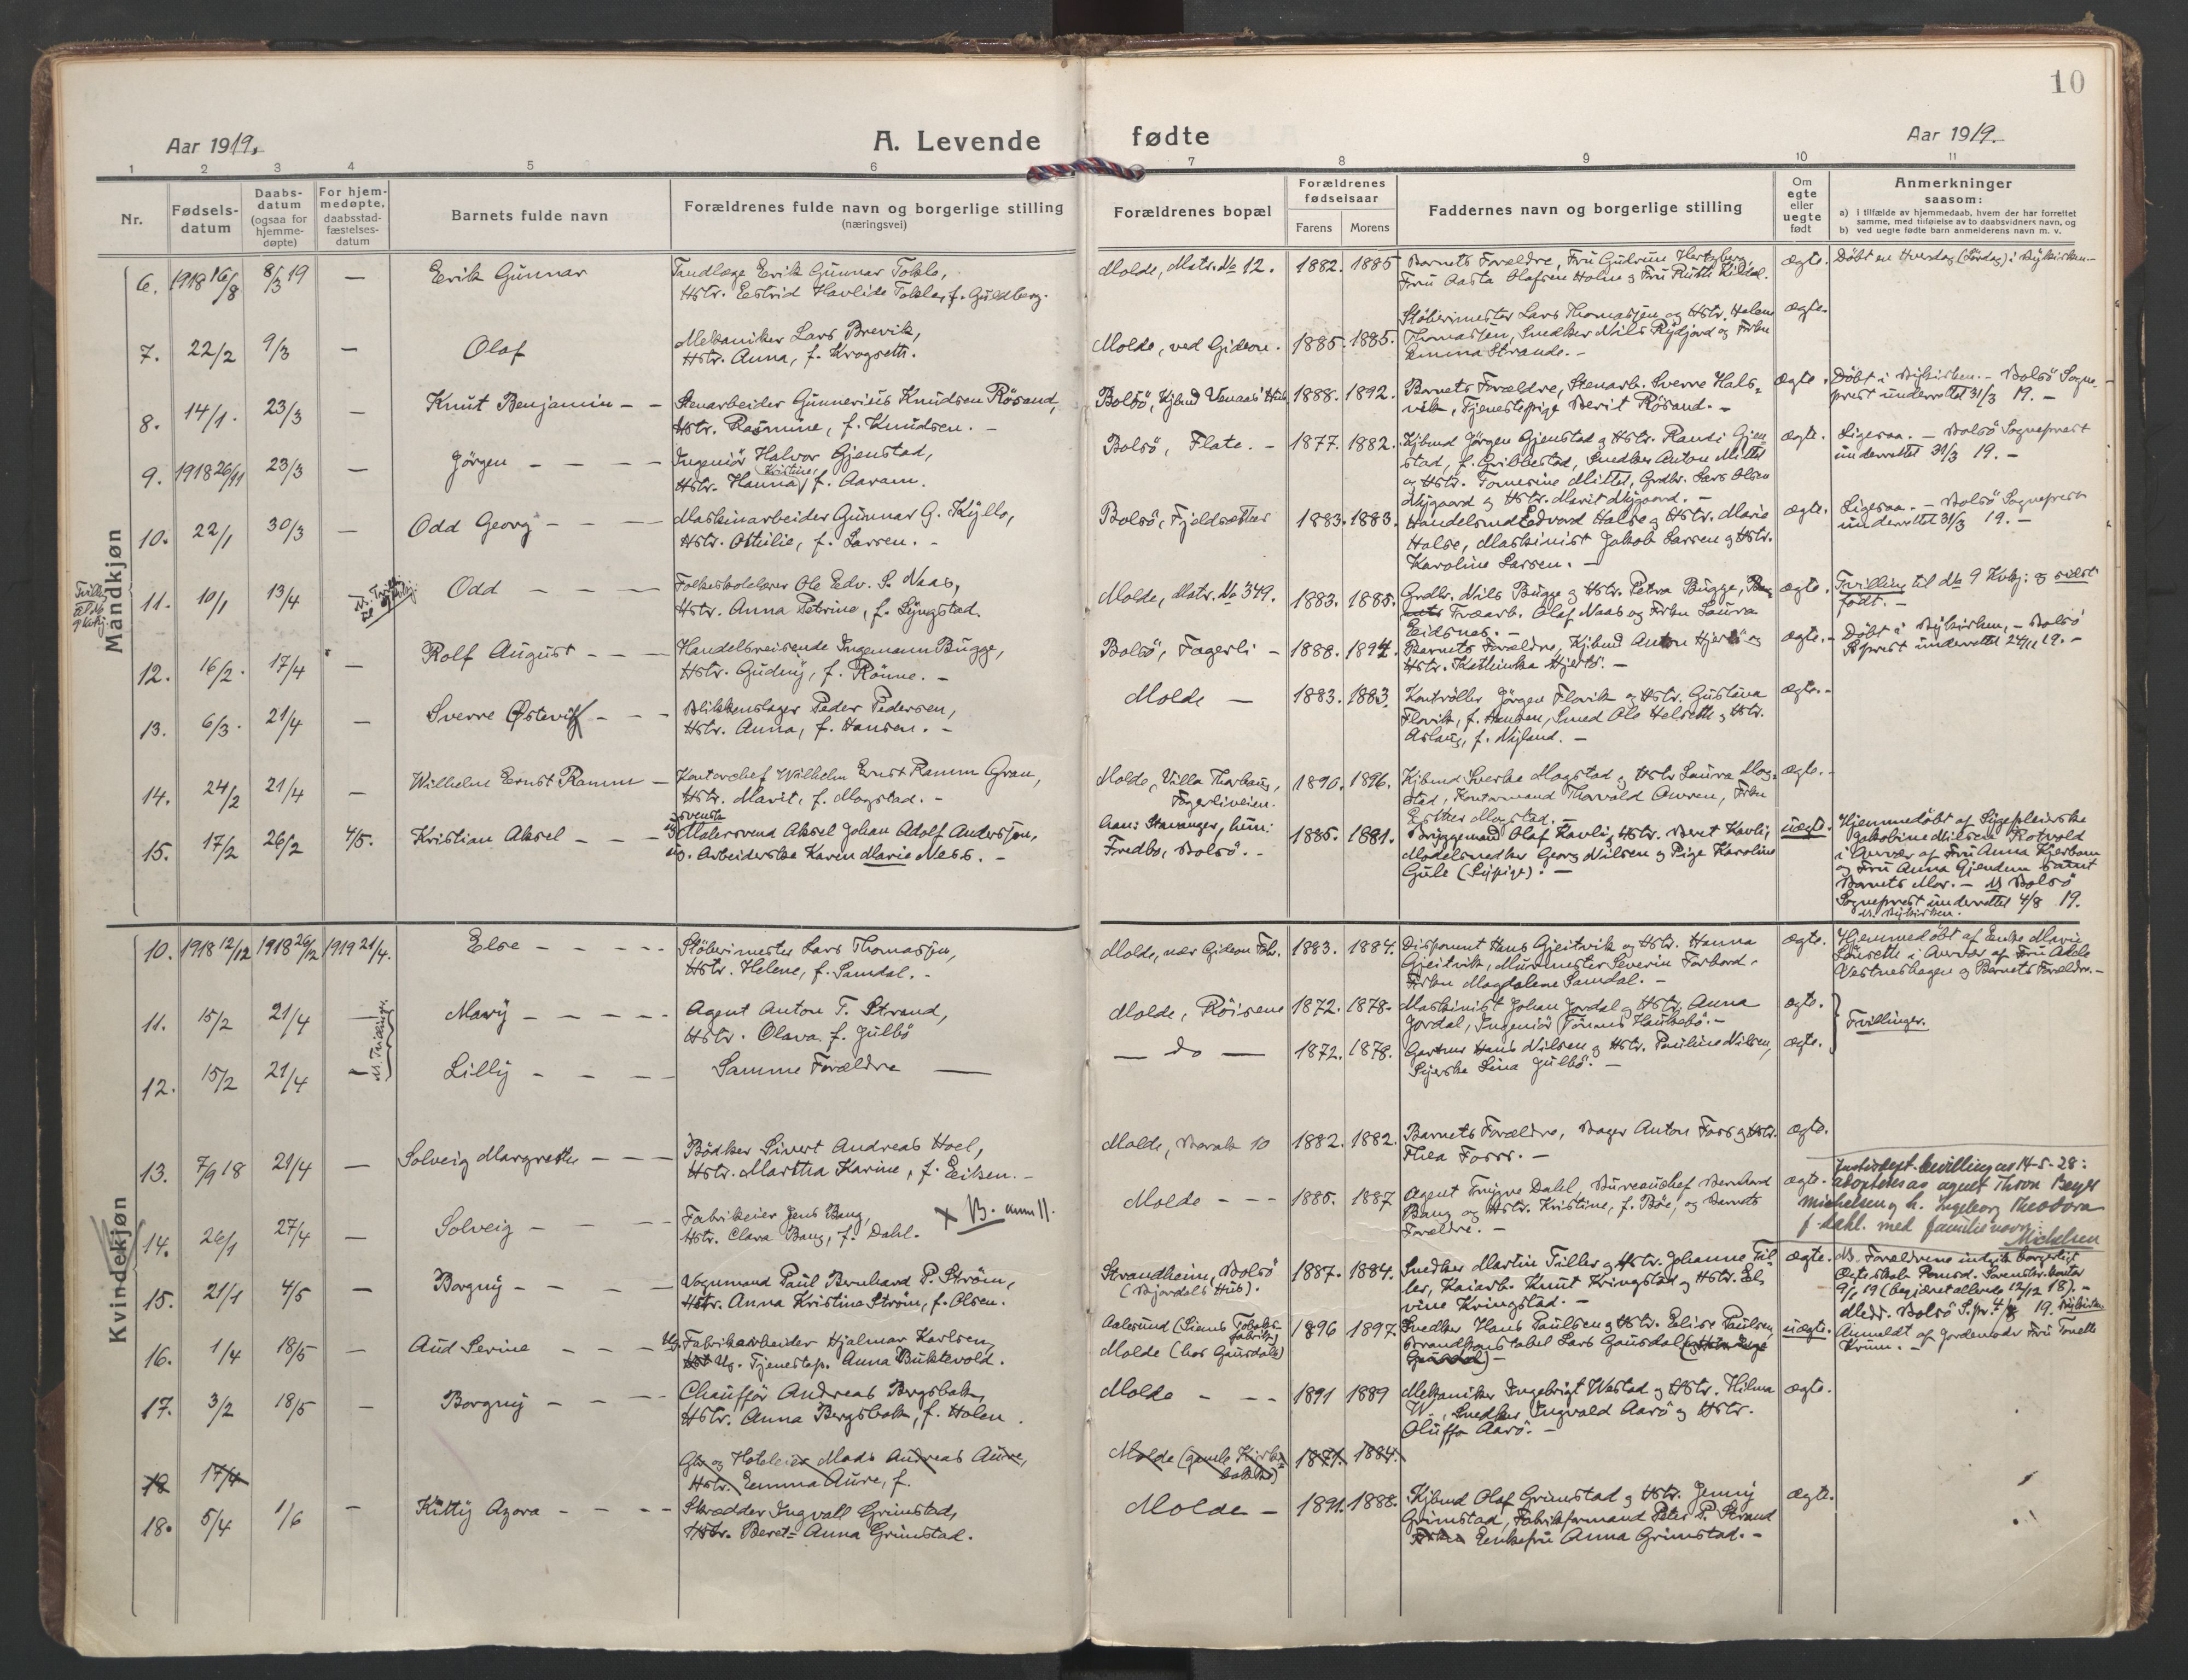 10
Aar 1919.
A. Levende fødte
Aar 1919.
1 2 3 4 5 6 7 8 9 10 11
Nr.
Fødsels-
datum
Daabs-
datum
(ogsaa for
hjemme-
døpte)
For hjem-
medøpte,
daabsstad-
fæstelses-
datum
Barnets fulde navn
Forældrenes fulde navn og borgerlige stilling
(næringsvei)
Forældrenes bopæl
Forældrenes
fødselsaar
Farens Morens
Faddernes navn og borgerlige stilling
Om
egte
eller
uegte
født
Anmerkninger
saasom:
a) i tilfælde av hjemmedaab, hvem der har forrettet
samme, med tilføielse av to daabsvidners navn, og
b) ved uegte fødte barn anmelderens navn m. v.
Mandkjøn
6. 1918 16/8 8/3 19 — Eerik Gunnar
Tandlæge Eerik Gunnar Tokle,
Hstr. Eestrid Havlide Tokle, f. Guldberg.
Molde, Matr. No 12. 1882. 1885
Barnets Forældre, Fru Gudrun Hertzberg,
Fru Aasta Olafsen Holm og Fru Ruth Kildal.
ægte. Døbt en Hverdag (Lördag) i Bykirken.
7. 22/2 9/3 — Olaf
Mekaniker Lars Brevik,
Hstr. Anna, f. Krogseth.
Molde, ved Gideon. 1885. 1885.
Støberimester Lars Thomassen og Hstr. Helene
Thomassen, Snedker Nils Rydjord og Frkn
Emma Strande. -
ægte.
8. 14/1. 23/3 — Knut Benjamin - -
Stenarbeider Gunnerius Knudsen Rösand,
Hstr. Rasmine, f. Knudsen. -
Bolsö, Kjbmd Venaas' Hus 1888. 1892.
Barnets Forældre, Stenarb. Sverre Hals-
vik, Tjenestepige Berit Rösand. -
ægte. Døbt i Bykirken. - Bolsö Sogne-
prest underrettet 31/3 19. -
9. 1918 26/11 23/3 Jörgen - - - -
Ingeniör Halvor Gjenstad,
Hstr. Hanna Kristine, f. Aaram.
Bolsö, Flate. - 1877. 1882.
Kjbmd Jörgen Gjenstad og Hstr. Randi Gjen-
stad, f. Gribbestad, Snedker Anton Mittet
og Hstr. Tomerine Mittet, Grdbr. Lars Olsen
Mygaard og Hstr. Marit Mygaard. -
ægte. Ligesaa. - Bolsö Sogneprest
underrettet 31/3 19. -
10. 22/1 30/3 — Odd Georg - - -
Maskinarbeider Gunnar G. Kyllo,
Hstr. Othilie, f. Larsen. -
Bolsö, Fjeldsæter 1883. 1883.
Handelsmd Edvard Halse og Hstr. Marie
Halse, Maskinist Jakob Larsen og Hstr.
Karoline Larsen. -
ægte. Ligesaa. - Bolsö Sogneprest
underrettet 31/3 19. -
11. 10/1 13/4 Odd - - -
Folkeskolelærer Ole Edv. S. Naas,
Hstr. Anna Petrine, f. Lyngstad.
Molde, Matr. No 349. 1883. 1885.
Grdbr. Nils Bugge og Hstr. Petra Bugge,
Træarb. Olaf Naas og Frkn Laura
Eidsnes. -
ægte. Tvilling til No 9 Kvkj. og sidst
født. -
12. 16/2. 17/4 — Rolf August - - -
Handelsreisende Ingemann Bugge,
Hstr. Gudny, f. Rönne. -
Bolsö, Fagerli - 1888. 1894.
Barnets Forældre, Kjbmd Anton Hjertö og
Hstr. Kathinka Hjertö. -
ægte. - Døbt i Bykirken, - Bolsö
13. 6/3. 21/4 — Sverre Østevik - -
Blikkenslager Peder Pedersen,
Hstr. Anna, f. Hansen. -
Molde — 1883. 1883.
Kontrollör Jörgen Flovik og Hstr. Gustava
Flovik, f. Hansen, Smed Ole Helseth og Hstr.
Aslaug, f. Nyland. -
ægte. -
14. 24/2 21/4 — Wilhelm Ernst Ramm -
Kontorchef Wilhelm Ernst Ramm Gran,
Hstr. Marit, f. Mogstad. -
Molde, Villa Thorhaug,
Fagerliveien. 1890. 1896.
Kjbmd Sverke Mogstad og Hstr Laura Mog-
stad, Kontormand Thorvald Owren, Frkn
Esther Mogstad. -
ægte. -
15. 17/2 26/2 4/5. Kristian Aksel - - -
svensk
Ug. Malersvend Aksel Johan Adolf Andersson,
Ug. Arbeiderske Karen Marie Ness. -
han: Stavanger, hun:
Fredbo, Bolsö. - 1885. 1881.
Bryggemand Olaf Kavli, Hstr. Beret Kavli,
Modelsnedker Georg Nilsen og Pige Karoline
Gule (Sypige). -
uægte. Hjemmedøbt af Sygepleierske
Jakobine Nilsen Rotvold
i Overvær af Fru Anna Kjerbom
og Fru Anna Gjendem samt
Barnets Mor. - Bolsö
Sogneprest underrettet 4/8 19.
Kvindekjøn
10. 1918 12/12 1918 26/12 1919 21/4. Else - - - -
Støberimester Lars Thomassen,
Hstr. Helene, f. Samdal. -
Molde, nær Gideon Fbr. 1883. 1884.
Disponent Hans Gjeitvik og Hstr. Hanna
Gjeitvik, Murmester Severin Forbord.
Frkn Magdalene Samdal. -
ægte. Hjemmedøbt af Enke Marie
Lönseth i Overvær af Fru Adele
Vestneshagen og Barnets Forældre. -
11. 15/2 21/4 — Mary - - - -
Agent Anton T. Strand,
Hstr. Olava. f. Julbö
Molde, Röisene 1872. 1878.
Maskinist Johan Jordal og Hstr. Anna
Jordal, Ingeniör Tönnes Haukebö. -
ægte. Tvillinger.
12. 15/2 21/4 — Lilly - - -
Samme Forældre —
— do — 1872. 1878.
Gartner Hans Nilsen og Hstr. Pauline Nilsen,
Syerske Lina Julbö. -
ægte.
13. 7/9 18 21/4 — Solveig Margrethe - - -
Bödker Sivert Andreas Hoel,
Hstr. Martha Karine, f. Eiksen. -
Molde, Barak 10 1882. 1882.
Barnets Forældre, Bager Anton Foss og Hstr.
Thea Foss. -
ægte.
14. 26/1 27/4 — Solveig - - -
Fabrikeier Jens Bang,
Hstr. Clara Bang, f. Dahl. X B. anm 11.
Molde - - - 1885. 1887
Agent Trygve Dahl, Bureauchef Bernhard
Bang og Hstr. Kristine, f. Böe, og Barnets
Forældre. -
ægte. Justisdept. bevilling av 14-5-28:
adopteres av agent Thron Beyer
Michelsen og h. Ingeborg Theodora
f. Dahl. med familienavn:
Michelsen
15. 21/1 4/5 — Borgny - - -
Vognmand Paul Bernhard P. Strøm,
Hstr. Anna Kristine Strøm, f. Olsen.
Strandheim, Bolsö
(Bjordals Hus). 1887. 1884.
Snedker Martin Tiller og Hstr. Johanne Til-
ler, Kaiarb. Knut Kringstad og Hstr. El-
vine Kringstad. -
ægte. Forældrene indgik borgerligt
16. 1/4 18/5 — Aud Serine - - -
Ug. Fabrikarbeider Hjalmar Karlsen,
Ug. Tjenestep. Anna Buktevold.
Aalesund (Liens Tobaks-
fabrik)
Molde (hos Gausdals) 1896 1897.
Snedker Hans Paulsen og Hstr. Elise Paulsen,
Brandkonstabel Lars Gausdal
uægte. Anmeldt af Jordemoder Fru Tomette
Krum. -
17. 3/2 18/5 — Borgny - - -
Chauffør Andreas Bergsbak,
Hstr. Anna Bergsbak, f. Holen.
Molde - - - 1891 1889
Mekaniker Ingebrigt Westad og Hstr. Hilma
W., Snedker Ingvald Aarö og Hstr.
Oluffa Aarö. -
ægte.
18 17/4
Gbr og Hoteleier Mads Andreas Aure,
Hstr. Emma Aure, f.
Molde (gamle 1871. 1884.
18. 5/4 1/6 — Kitty Azora - - - -
Skrædder Ingvall Grimstad,
Hstr. Beret-Anna Grimstad.
Molde - 1891. 1888.
Kjbmd Olaf Grimstad og Hstr. Jenny
Grimstad, Fabrikformand Peter P. Strand
Enkefru Anna Grimstad. -
ægte.